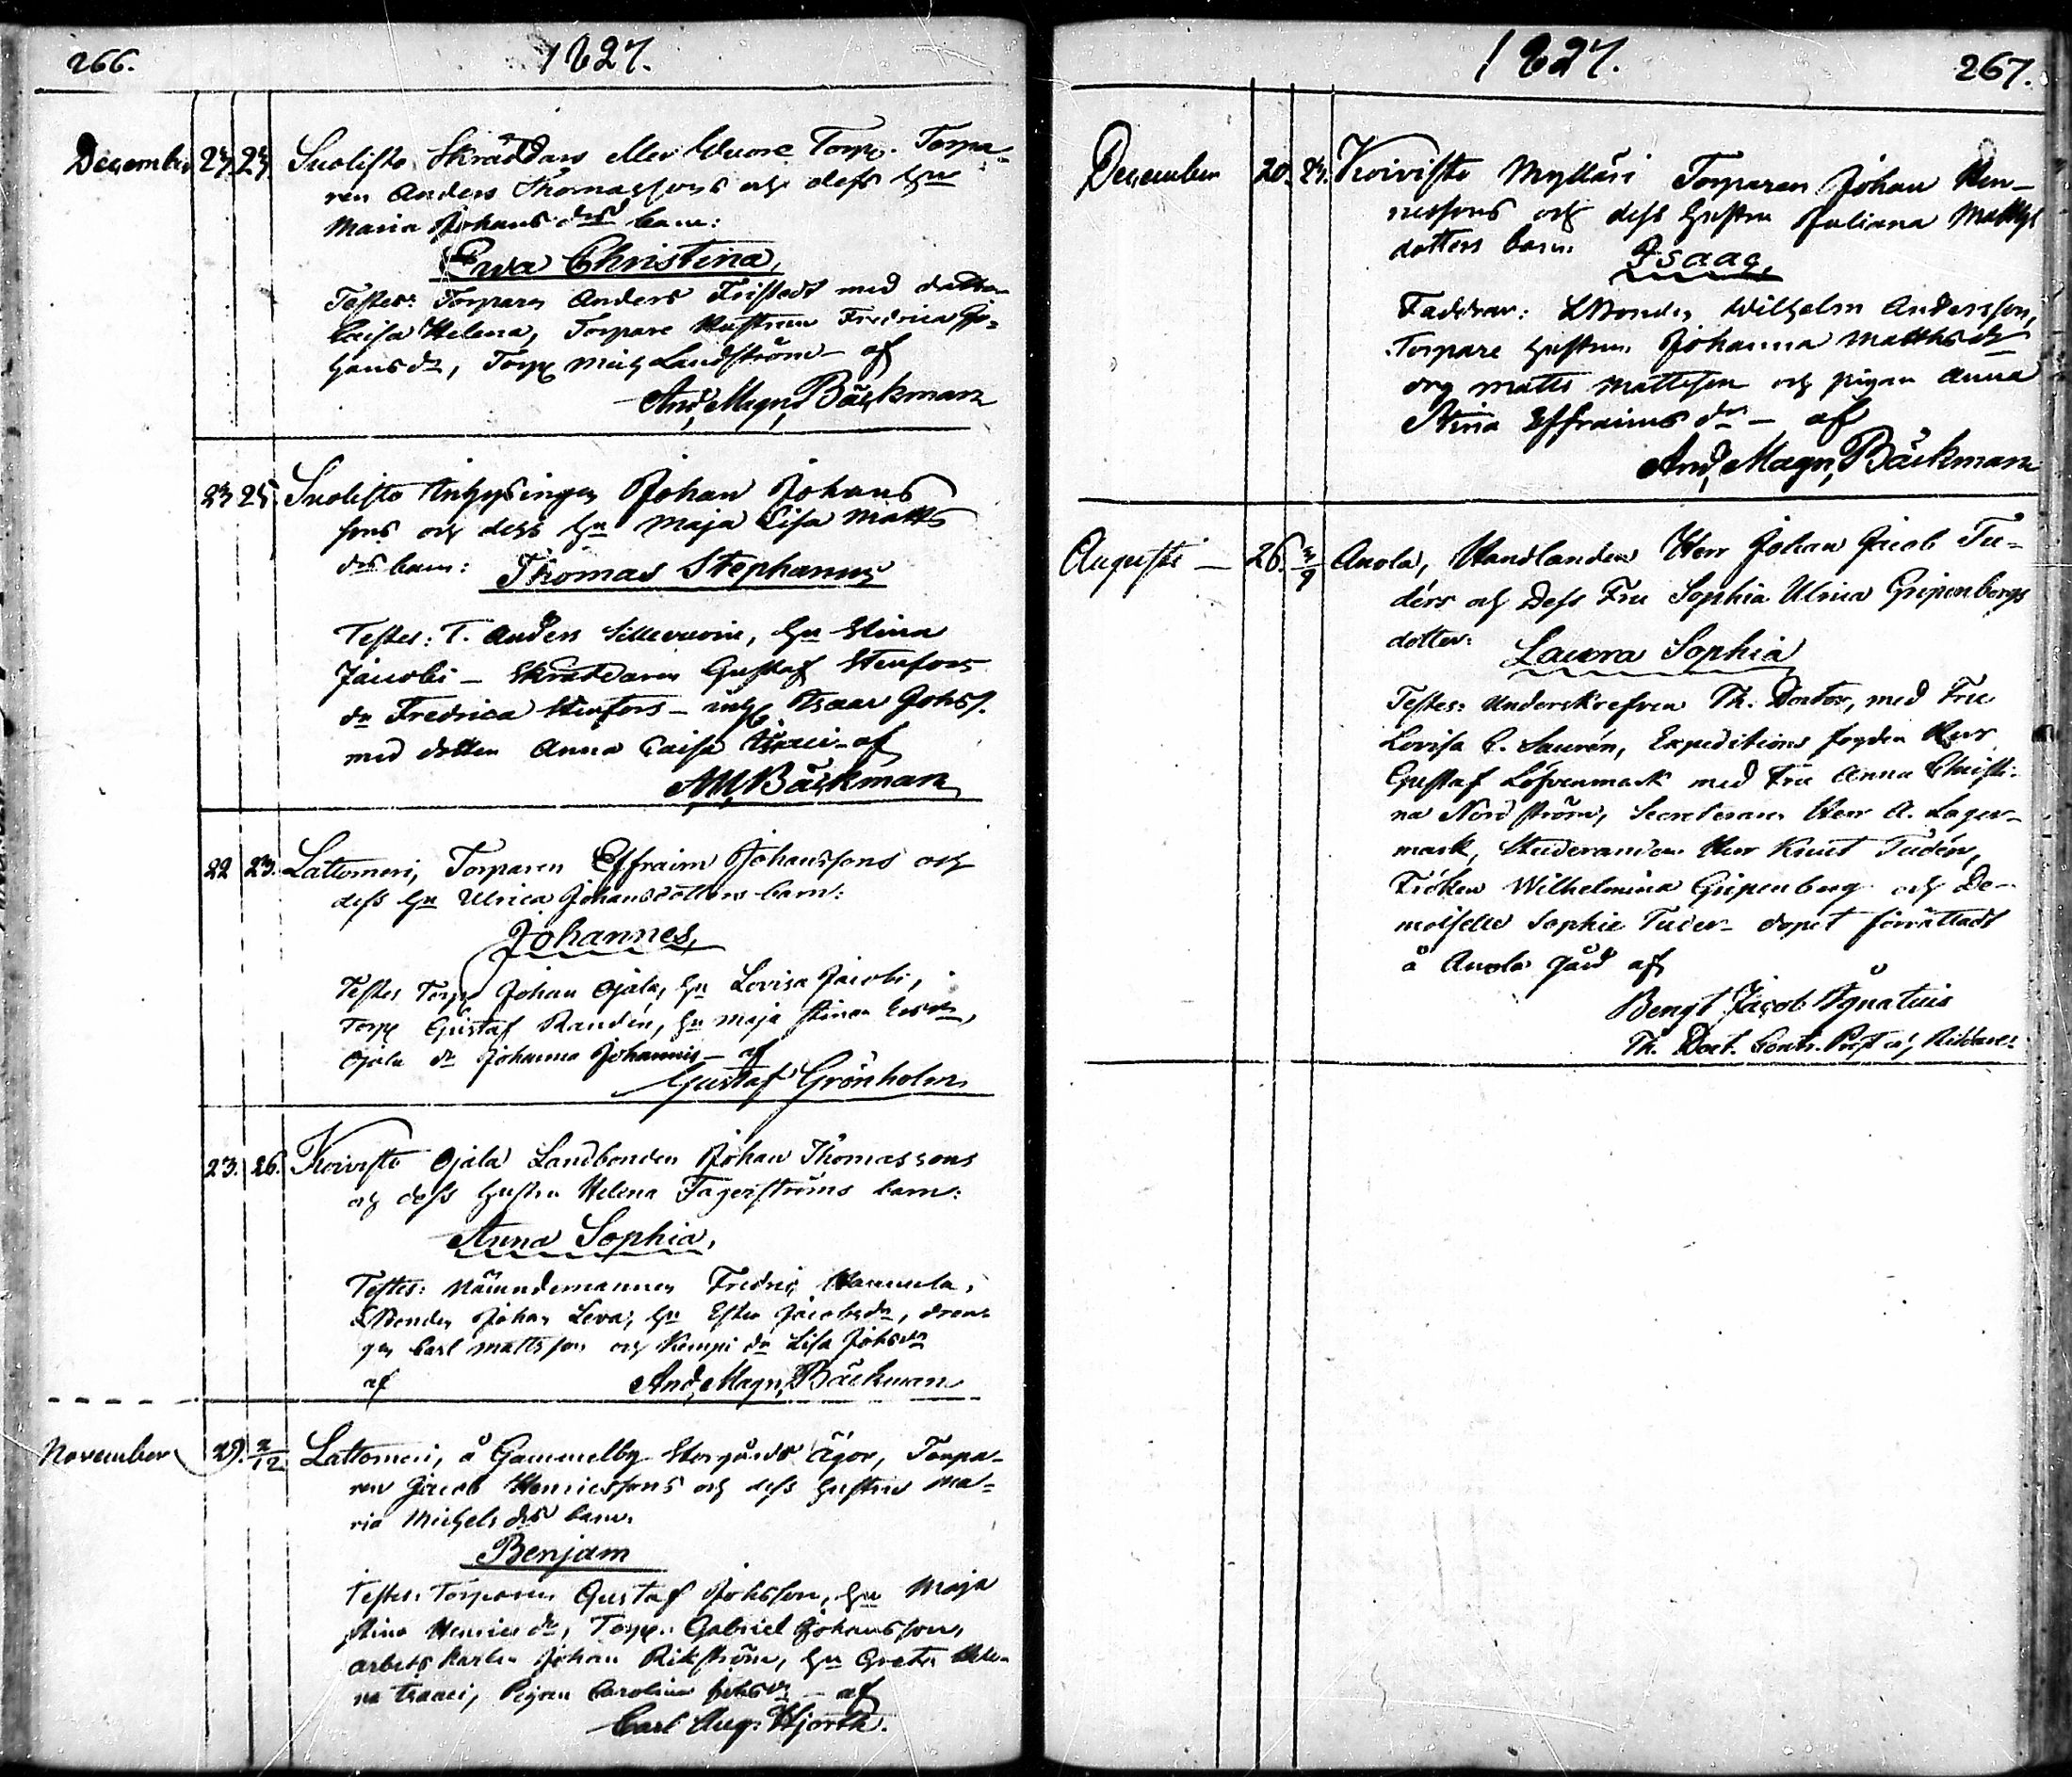 266. 1827.
December 23 23 Suolisto Skräddars eller Torp. Torpa-
ren Anders Thomassons och dess hu
Maria Johans drs barn:
Ewa Christina,
Testes: Torparen Anders Fristedt med dottren
Caisa Helena, Torpare Hustrun Fredrica Jo-
hansdr, Torp Mich Landström – af
And, Magn, Bäckman
23 25. Suolisto Inhysingen Johan Johans
sons och dess hu Maja Lisa Matts
drs barn: Thomas Stephanus
Testes: T. Anders Sillevuori, hu Stina
Jacobi – Skräddaren Gustaf Stenfors
dr Fredrica Stenfors – inh Isaac Johss.
med dottren Anna Caisa Isaci – af
A M, Bäckman
22 23. Lattomeri, Torparen Effraim Johanssons och
dess hu Ulrica Johansdotters barn:
Johannes,
Testes Torp Johan Ojala, hu Lovisa Jacobi,
Torp Gustaf Randén, hu Maja Stina
Ojala dr Johanna Johannis – af
Gustaf Grönholm
23. 26. Koivisto Ojala Landbonden Johan Thomassons
och dess hustru Helena Fagerströms barn:
Anna Sophia,
Testes: Nämndemannen Fredric Hannula,
LBonden Johan Leva, hu Ester Jacobsdr, dren-
gen Carl Mattsson och Kempi dr Lisa Johsdr
af And, Magn, Bäckman
November 29. 2/12 Lattomeri, å Gammelby Storgårds ägor, Torpa-
ren Jacob Henricssons och dess hustru Ma-
ria Michels drs barn.
Benjam
Testes: Torparen Gustaf Johsson, hu Maja
Stina Henrics dr, Torp. Gabriel Johansson,
arbets karlen Johan Rikström, hu Greta Hele-
na Isaaci, Pigan Carolina Johsdr – af
Carl Aug. Hjorth.
1827. 267.
December 20. 23. Koivisto Mylläri Torparen Johan Hen-
ricssons och dess hustru Juliana Matths
dotters barn: Isaac,
Faddrar: LBonden Wilhelm Andersson,
Torpare hustrun Johanna Matthsdr
drg Matts Mattsson och pigan Anna
Stina Effraims dr – af
And, Magn, Bäckman
Augusti – 26. 3/9 Anola, Handlanden Herr Johan Jacob Tu-
dérs och Dess Fru Sophia Ulrica Gripenbergs
dotter: Laura Sophia
Testes: Underskrefven Th. Doctor, med Fru
Lovisa C. Saurén, Expeditions fogden Herr
Gustaf Löfvenmark med Fru Anna Christi-
na Nordström, Secreteraren Herr A. Lager-
mark, Studeranden Herr Knut Tudér,
Fröken Wilhelmina Gripenberg och De-
moiselle Sophie Tudér – dopet förrättadt
å Anola gård af
Bengt Jacob Ignatius
Th. Doct. Contr. Prost och Riddare.